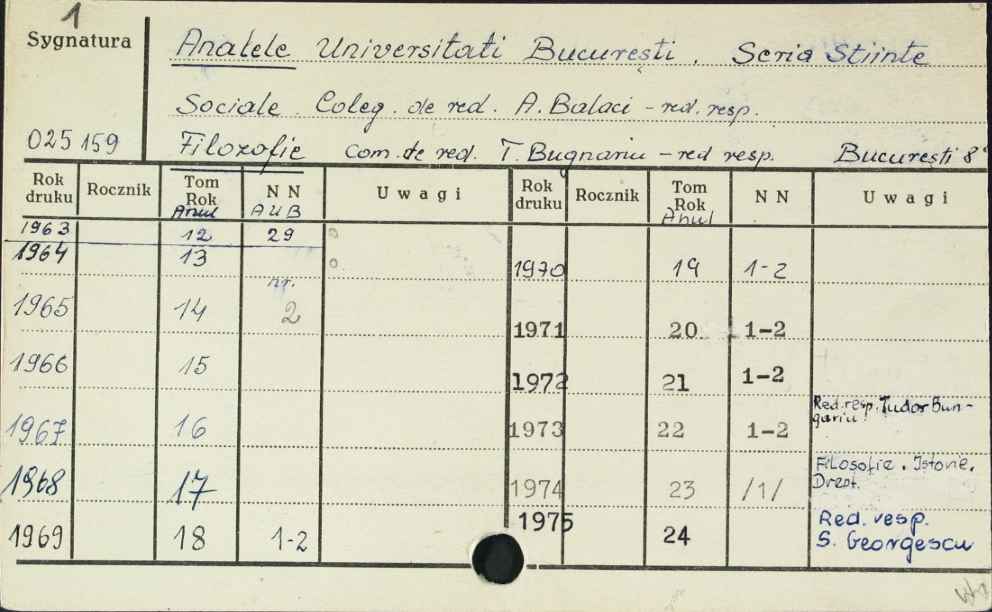 1
Sygnatura
Analele Universitati Bucureşti. Seria Stiinte
Sociale. Coleg. de red. A. Balaci - red. resp.
025159
Filozofie com. de red. T. Bugnariu - red resp. Bucureşti 8°
Rok druku Rocznik Tom Rok Anul N N AUB Uwagi Rok druku Rocznik Tom Rok Anul N N Uwagi
1963 12 29
1964 13
1970 19 1-2
1965 14 nr. 2
1971 20 1-2
1966 15
1972 21 1-2
Red. resp. Tudor Bun-
gariu
1967 16
1973 22 1-2
Filosofie. Istorie.
Drept.
1968 17
1974 23 /1/
1969 18 1-2
1975 24
Red. resp.
S. Georgescu